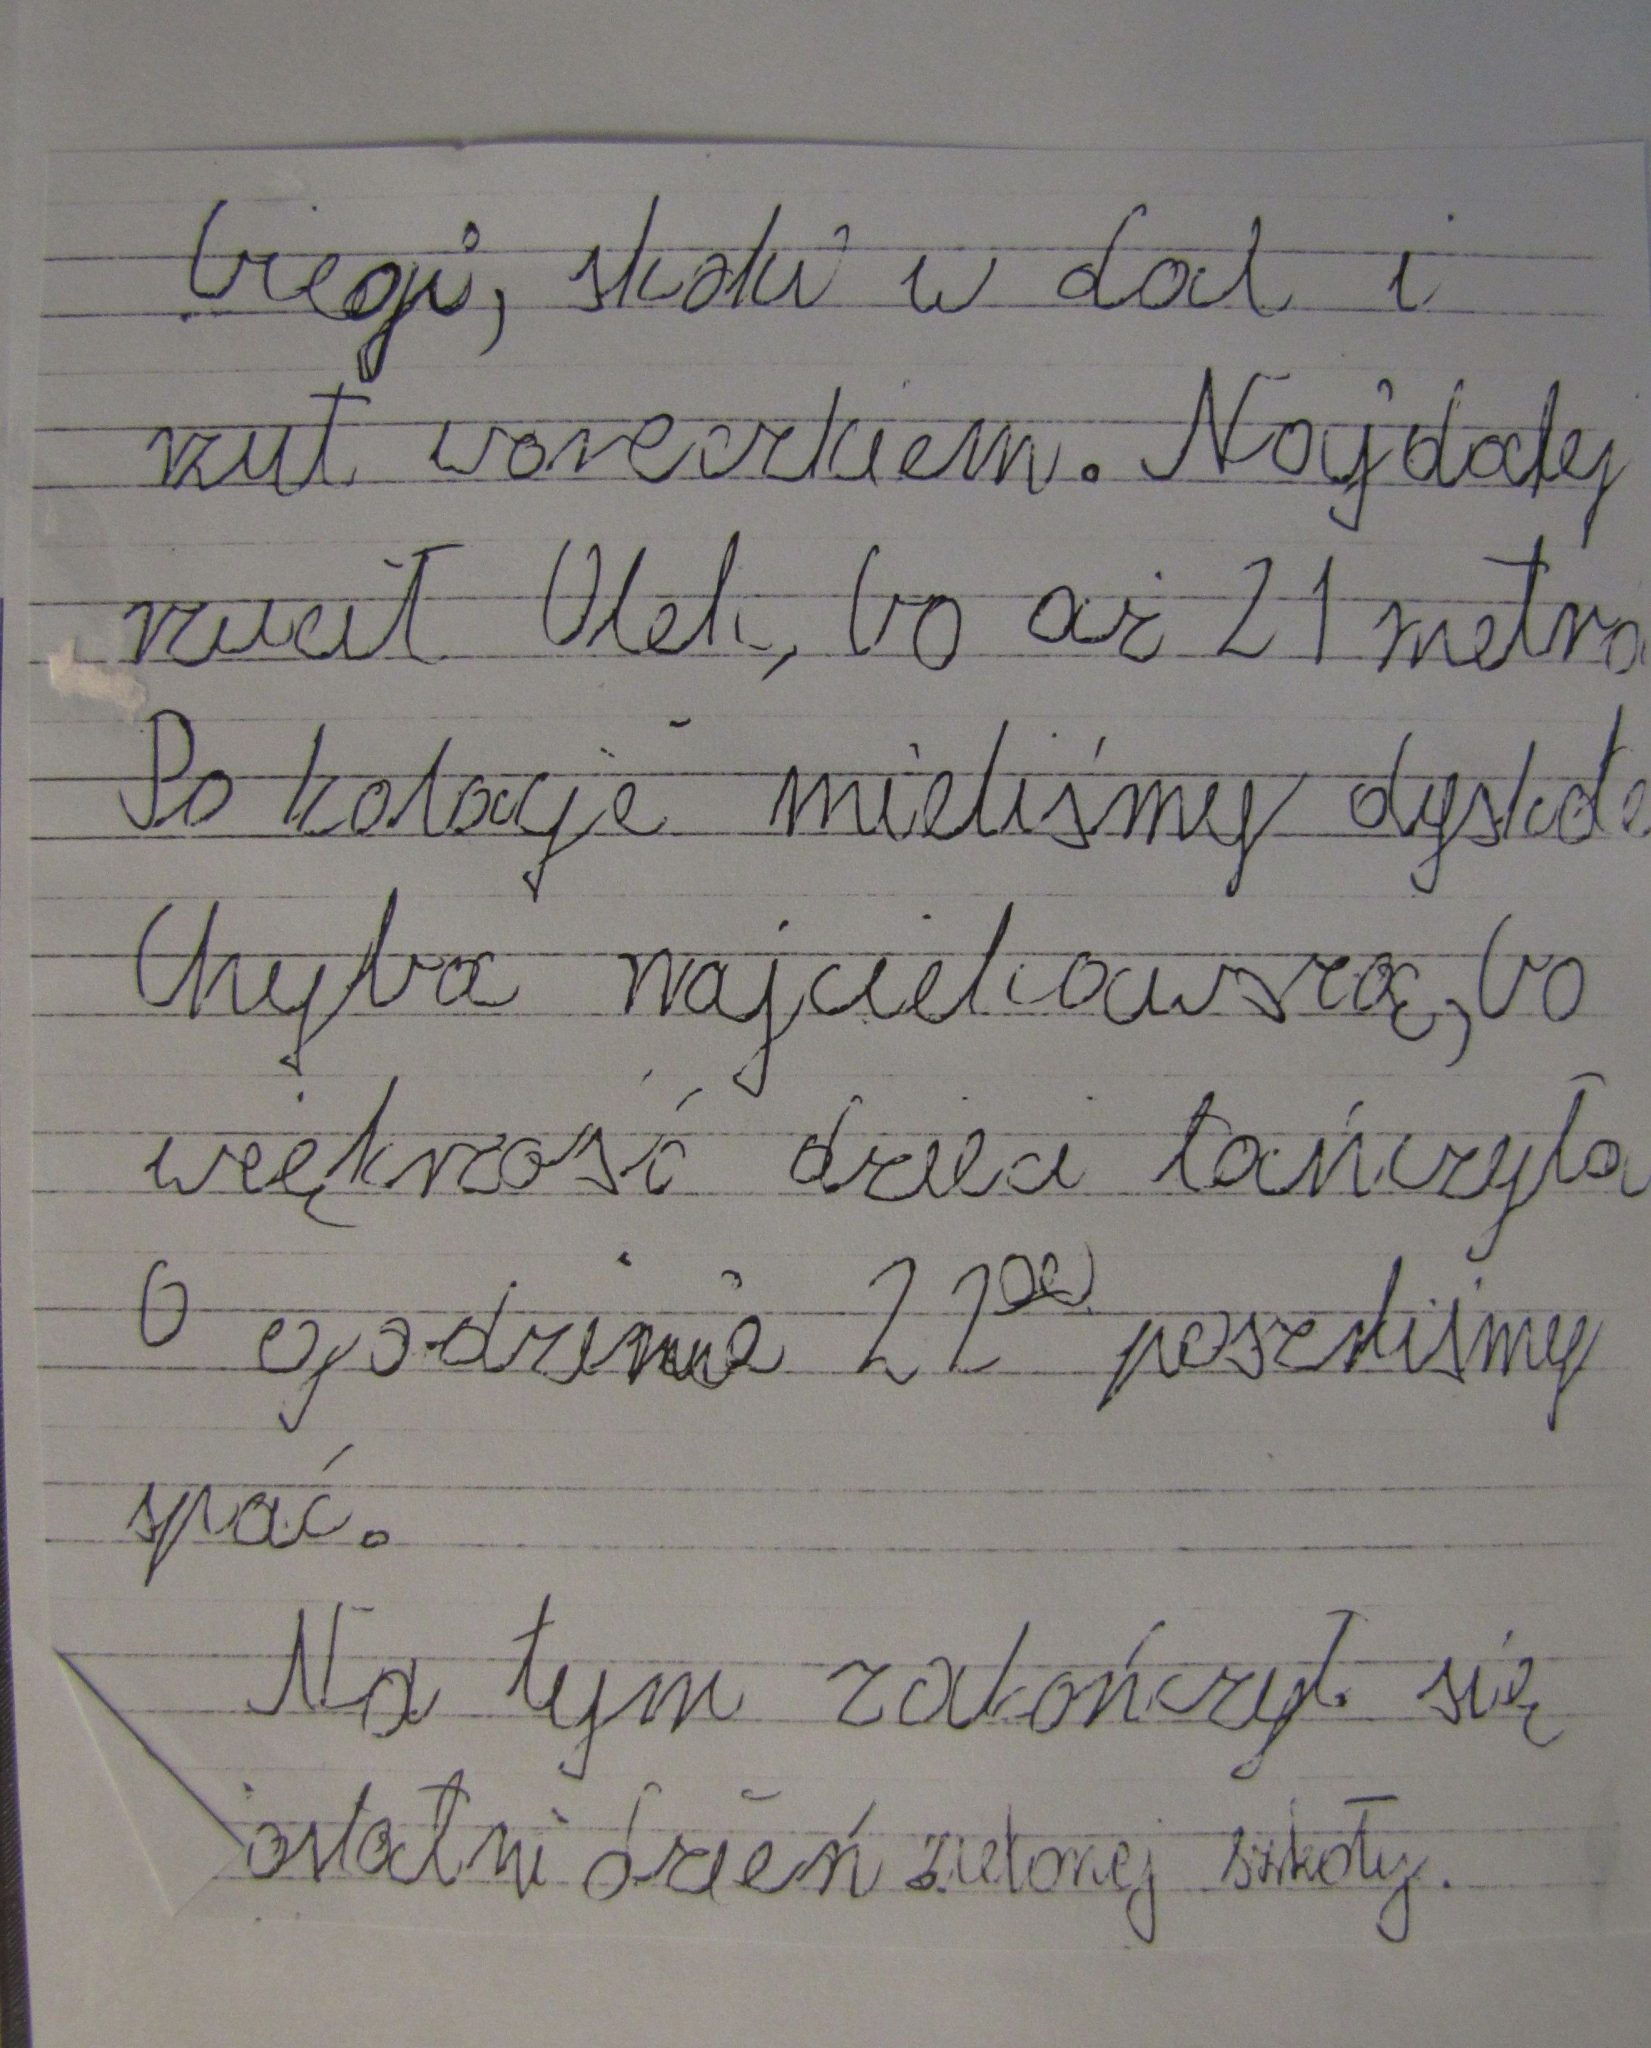 biegi, skoki w dal i
rzut woreczkiem. Najdalej
rzucił Olek, bo aż 21 metra
Po kolacje mieliśmy dysko
Chyba najciekawszą, bo
większość dzieci tańczyła
O godzinie 22⁰⁰ poszliśmy
spać.
Na tym zakończył się
ostatni dzień zielonej szkoły.